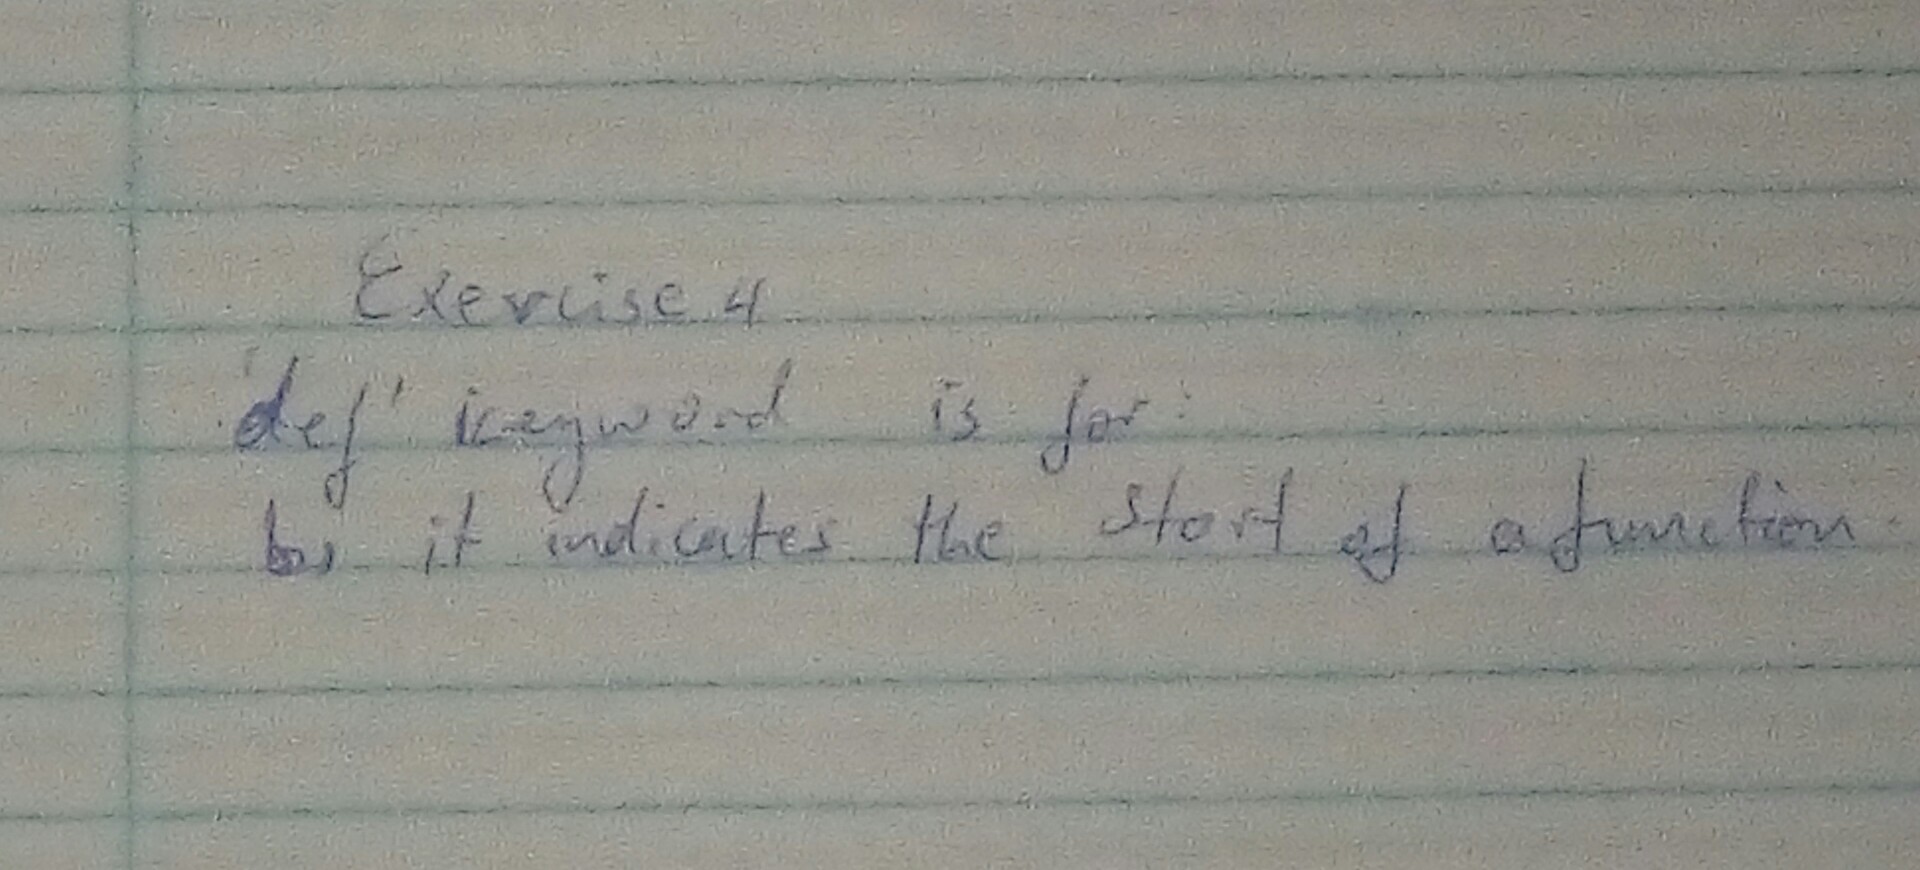 Exercise 4
'def' keyword is for:
b) it indicates the start of a function.